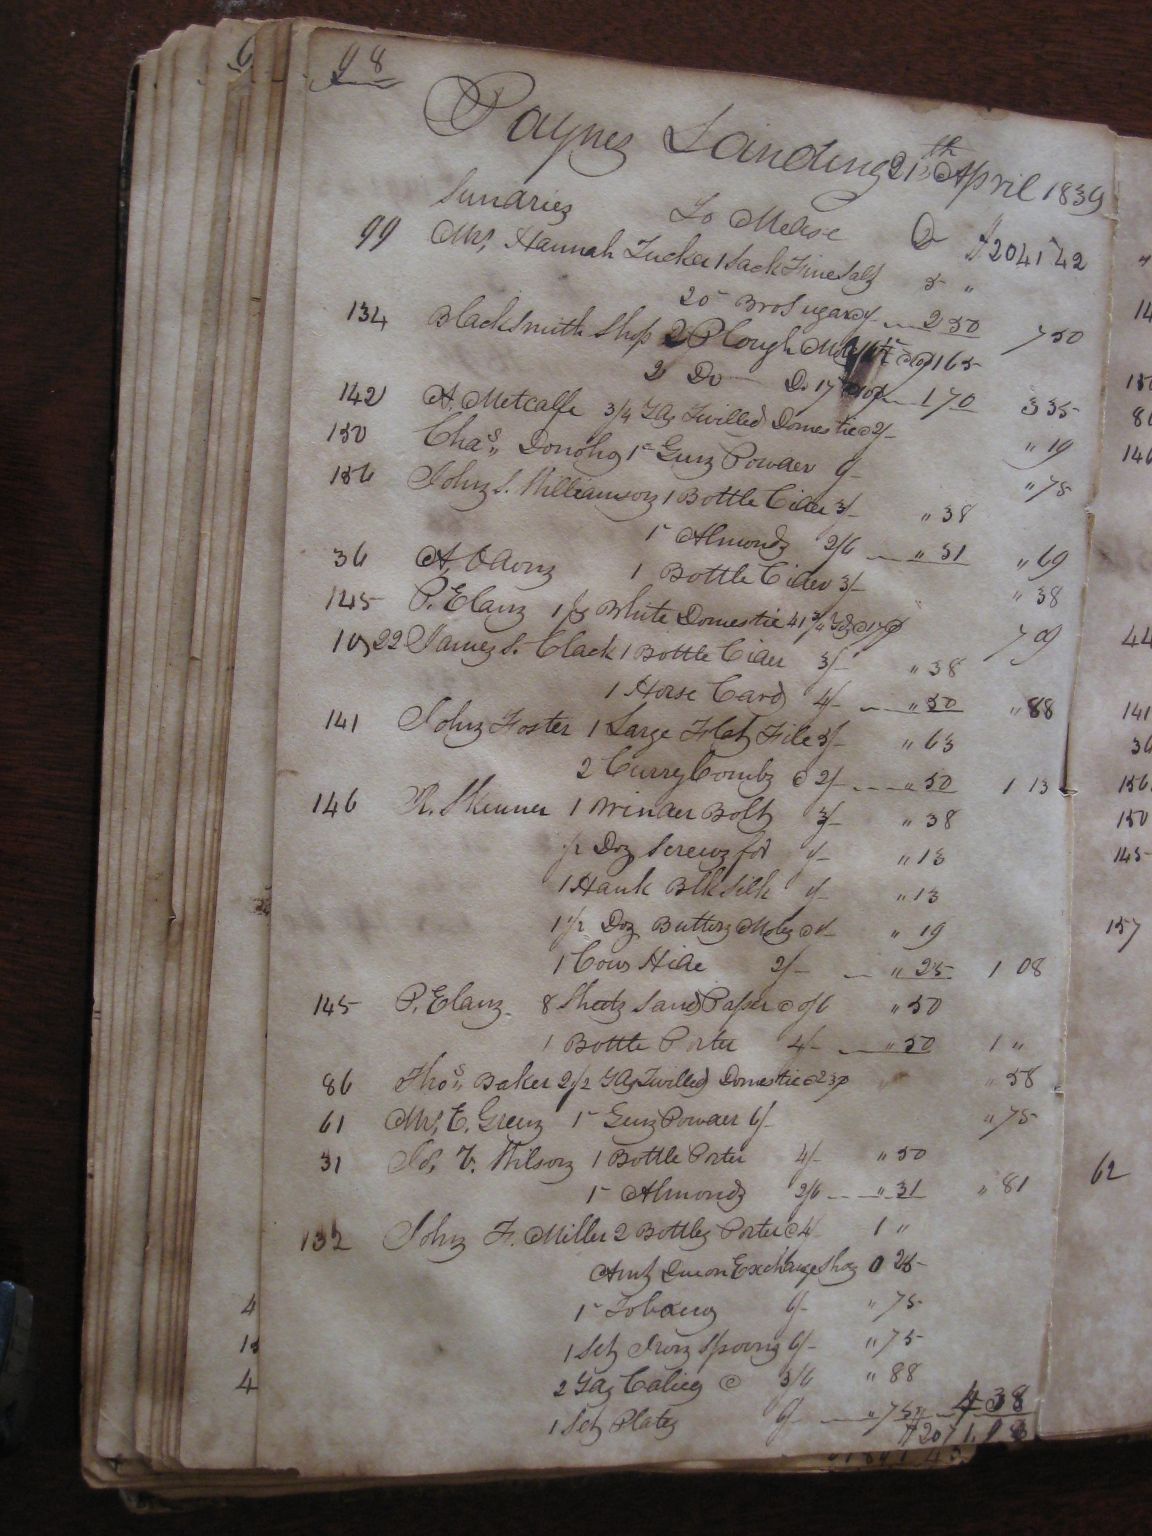 98
Paynes Landing 21th April 1839
Sundries To Mdse Dr $2041 42
99 Mrs Hannah Tucker 1 Sack Fine Salt 5 "
20 Bro Sugar @ 2 50 7 50
134 Blacksmith Shop 2 Plough 165
2 Do Do 17 @ 10¢ 1 70 3 35
142 A. Metcalfe 3/4 Yds Twilled Domestic @ 2/- " 19
150 Chas Donoho 1 Gun Powder 6/- " 75
156 John S. Williamson 1 Bottle Cider 3/- " 38
1 Almonds 2/6 " 31 " 69
36 A. 1 Bottle Cider 3/- " 38
145 P. Elam 1 ps White Domestic 41 3/4 Yds @ 17¢ 7 09
10,22 James S. Clack 1 Bottle Cider 3/- " 38
1 Horse Card 4/- " 50 " 88
141 John Foster 1 Large Flat File 5/- " 63
2 Curry Combs @ 2/- " 50 1 13
146 R. Skinner 1 Winder Bolt 3/- " 38
1/2 Doz Screws for 1/- " 13
1 Hank Blk Silk 1/- " 13
1 1/2 Doz Buttons @ 1/- " 19
1 Cow Hide 2/- " 25 1 08
145 P. Elam 8 Sheets Sand Paper @ 0/6 " 50
1 Bottle Porter 4/- " 50 1 "
86 Thos Baker 2 1/2 Yds Twilled Domestic @ 23¢ " 58
61 Mrs E. Green 1 Gun Powder 6/- " 75
31 V. Wilson 1 Bottle Porter 4/- " 50
1 Almonds 2/6 " 31 " 81
132 John F. Miller 2 Bottles Porter @ 4/- 1 "
Amt Due on Exchange Shoes 0 25
1 6/- " 75
1 Set Iron Spoons 6/- " 75
2 Yds Calico @ 3/6 " 88
1 Set Plates 6/- " 75 4 38
$2071.18